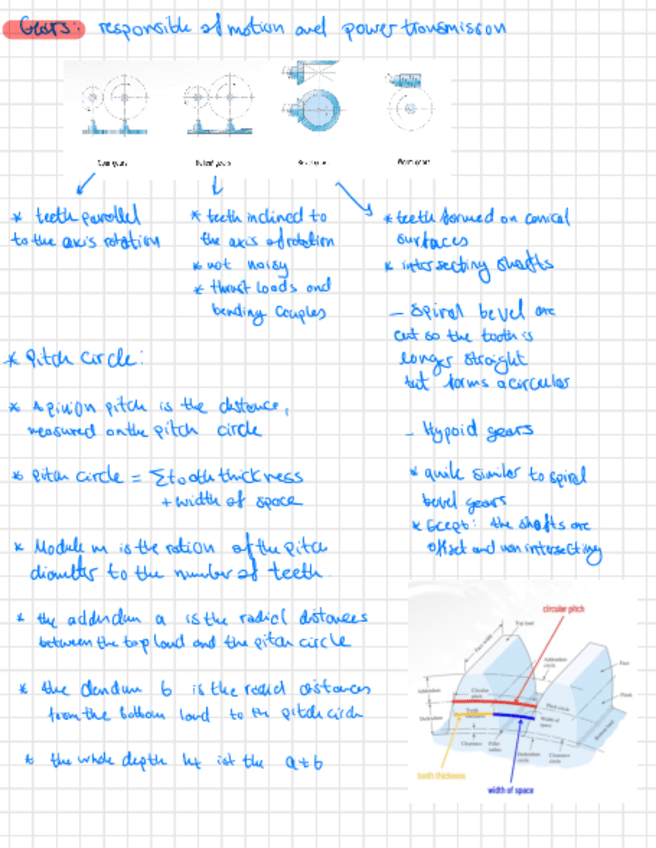 Gears: responsible of motion and power transmisson
Spur gears
Helical gears
Bevel gears
Worm gears
* teeth parallel
to the axis rotation
* teeth inclined to
the axis of rotation
* not noisy
* thrust loads and
bending couples
* teeth formed on conical
surfaces
* intersecting shafts
- Spiral bevel are
cut so the tooth is
longer straight
but forms a circular
- Hypoid gears
* quite similar to spiral
bevel gears
* Except: the shafts are
offset and non intersecting
* Pitch circle:
* A pinion pitch is the distance,
measured on the pitch circle
* pitch circle = Σ tooth thickness
+ width of space
* Module m is the ration of the pitch
diametter to the number of teeth
* the addendum a is the radial distances
between the top land and the pitch circle
* the dendum b is the radial distances
from the bottom land to the pitch circle
* the whole depth ht ist the a+b
circular pitch
Top land
Face width
Addendum
circle
Face
Addendum
Circular
pitch
Pitch circle
Flank
Dedendum
Tooth
Width of
space
Bottom land
Clearance
Fillet
radius
Dedendum
circle
Clearance
circle
tooth thickness
width of space